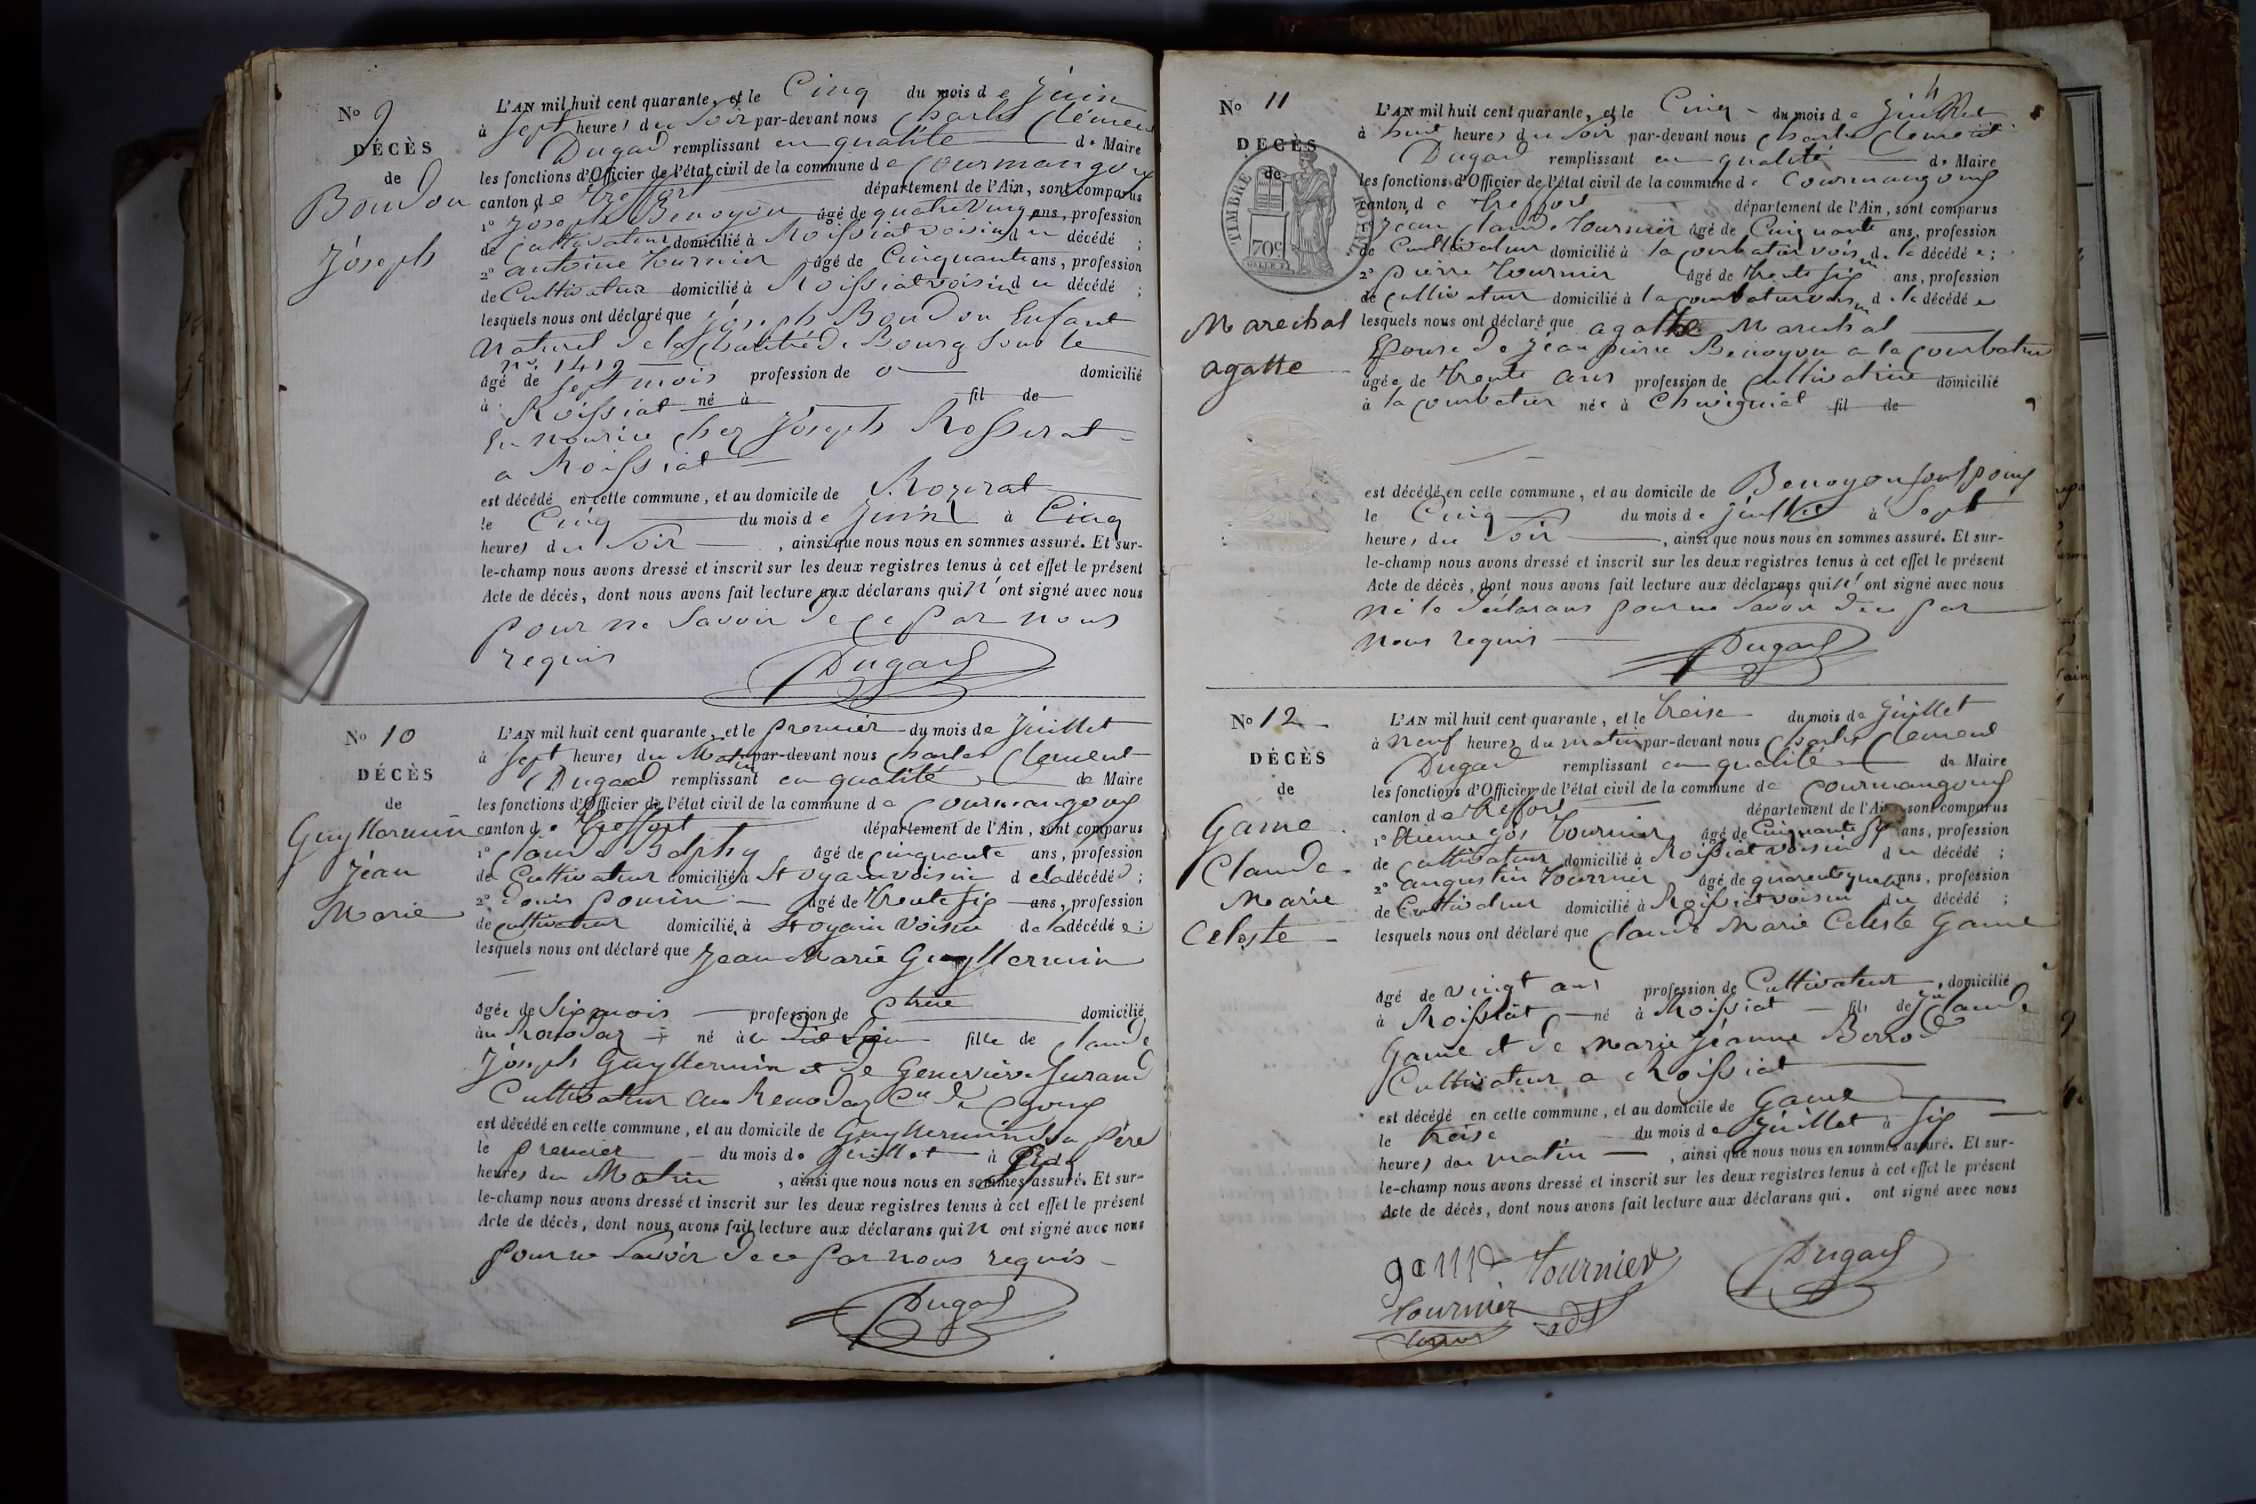 No 9
DÉCÈS
de
Boudon
Joseph
L'AN mil huit cent quarante, et le Cinq du mois de Juin
à Sept heures du Soir par-devant nous Charles Clément
Dugad remplissant en qualité de Maire
les fonctions d'Officier de l'état civil de la commune de Courmangoux
canton de Treffort département de l'Ain, sont comparus
1° Joseph Benoyon âgé de quatre vingt ans, profession
de Cultivateur domicilié à Roissiat voisin du décédé ;
2° antoine Tournier âgé de Cinquante ans, profession
de Cultivateur domicilié à Roissiat voisin du décédé ;
lesquels nous ont déclaré que Joseph Boudon Enfant
naturel de la Charité de Bourg Sous le
no. 1419
âgé de Sept mois profession de domicilié
à Roissiat né à fil de
En nourice chez Joseph Rosserat
a Roissiat
est décédé en cette commune, et au domicile de Rozerat
le Cinq du mois de Juin à Cinq
heures du Soir, ainsi que nous nous en sommes assuré. Et sur-
le-champ nous avons dressé et inscrit sur les deux registres tenus à cet effet le présent
Acte de décès, dont nous avons fait lecture aux déclarans qui n'ont signé avec nous
pour ne Savoir de ce par nous
requis
Dugad
No 10
DÉCÈS
de
Guyllermin
Jéan
Marie
L'AN mil huit cent quarante, et le premier du mois de Juillet
à Sept heures du Matin par-devant nous Charles Clement
Dugad remplissant en qualité de Maire
les fonctions d'Officier de l'état civil de la commune de Courmangoux
canton de Treffort département de l'Ain, sont comparus
1° Claude Bolphy âgé de cinquante ans, profession
de Cultivateur domicilié à St oyain voisin de la décédé ;
2° Louis âgé de trente six ans, profession
de cultivateur domicilié à St oyain Voisin de la décédée ;
lesquels nous ont déclaré que Jean Marie Guyllermin
âgée de Six mois profession de domicilié
au né à fille de Claude
Joseph Guyllermin et de Genevieve Jurand
Cultivateur au
est décédé en cette commune, et au domicile de Guyllermin Son père
le premier du mois de Juillet à
heures du Matin, ainsi que nous nous en sommes assuré. Et sur-
le-champ nous avons dressé et inscrit sur les deux registres tenus à cet effet le présent
Acte de décès, dont nous avons fait lecture aux déclarans qui n ont signé avec nous
pour ne Savoir de ce par nous requis
Dugad
4
No 11
DÉCÈS
de
TIMBRE ROYAL
70c
Marechal
agatte
L'AN mil huit cent quarante, et le Cinq du mois de Juillet
à huit heures du Soir par-devant nous Charles Clement
Dugad remplissant en qualité de Maire
les fonctions d'Officier de l'état civil de la commune de Courmangoux
canton de Treffort département de l'Ain, sont comparus
1° Jean Claude Tournier âgé de Cinquante ans, profession
de Cultivateur domicilié à la courbatur voisin de la décédée ;
2° pierre Tournier âgé de trente six ans, profession
de cultivateur domicilié à la courbatur voisin de la décédée
lesquels nous ont déclaré que agathe Marechal
Epouse de Jéan pierre Benoyon a la courbatur
âgée de trente ans profession de cultivatrice domicilié
à la courbatur née à Chevigniat fil de
est décédé en cette commune, et au domicile de Benoyon son Epoux
le Cinq du mois de juillet à Sept
heures du Soir, ainsi que nous nous en sommes assuré. Et sur-
le-champ nous avons dressé et inscrit sur les deux registres tenus à cet effet le présent
Acte de décès, dont nous avons fait lecture aux déclarans qui n' ont signé avec nous
ni le déclarans pour ne Savoir de ce par
nous requis
Dugad
No 12
DÉCÈS
de
Game
Claude
Marie
Celeste
L'AN mil huit cent quarante, et le treise du mois de Juillet
à neuf heures du matin par-devant nous Charles Clement
Dugad remplissant en qualité de Maire
les fonctions d'Officier de l'état civil de la commune de Courmangoux
canton de Treffort département de l'Ain, sont comparus
1° Etienne Tournier âgé de Cinquante six ans, profession
de cultivateur domicilié à Roissiat voisin du décédé ;
2° augustin Tournier âgé de quarente quatre ans, profession
de Cultivateur domicilié à Roissiat voisin du décédé ;
lesquels nous ont déclaré que Claude Marie Celeste Game
âgé de vingt ans profession de Cultivateur, domicilié
à Roissiat né à Roissiat fils de Jn Claude
Game et de Marie Jéanne Borrod
Cultivateur a Roissiat
est décédé en cette commune, et au domicile de Game
le treise du mois de Juillet à Six
heures du matin, ainsi que nous nous en sommes assuré. Et sur-
le-champ nous avons dressé et inscrit sur les deux registres tenus à cet effet le présent
Acte de décès, dont nous avons fait lecture aux déclarans qui. ont signé avec nous
game Tournier Dugad
tournier